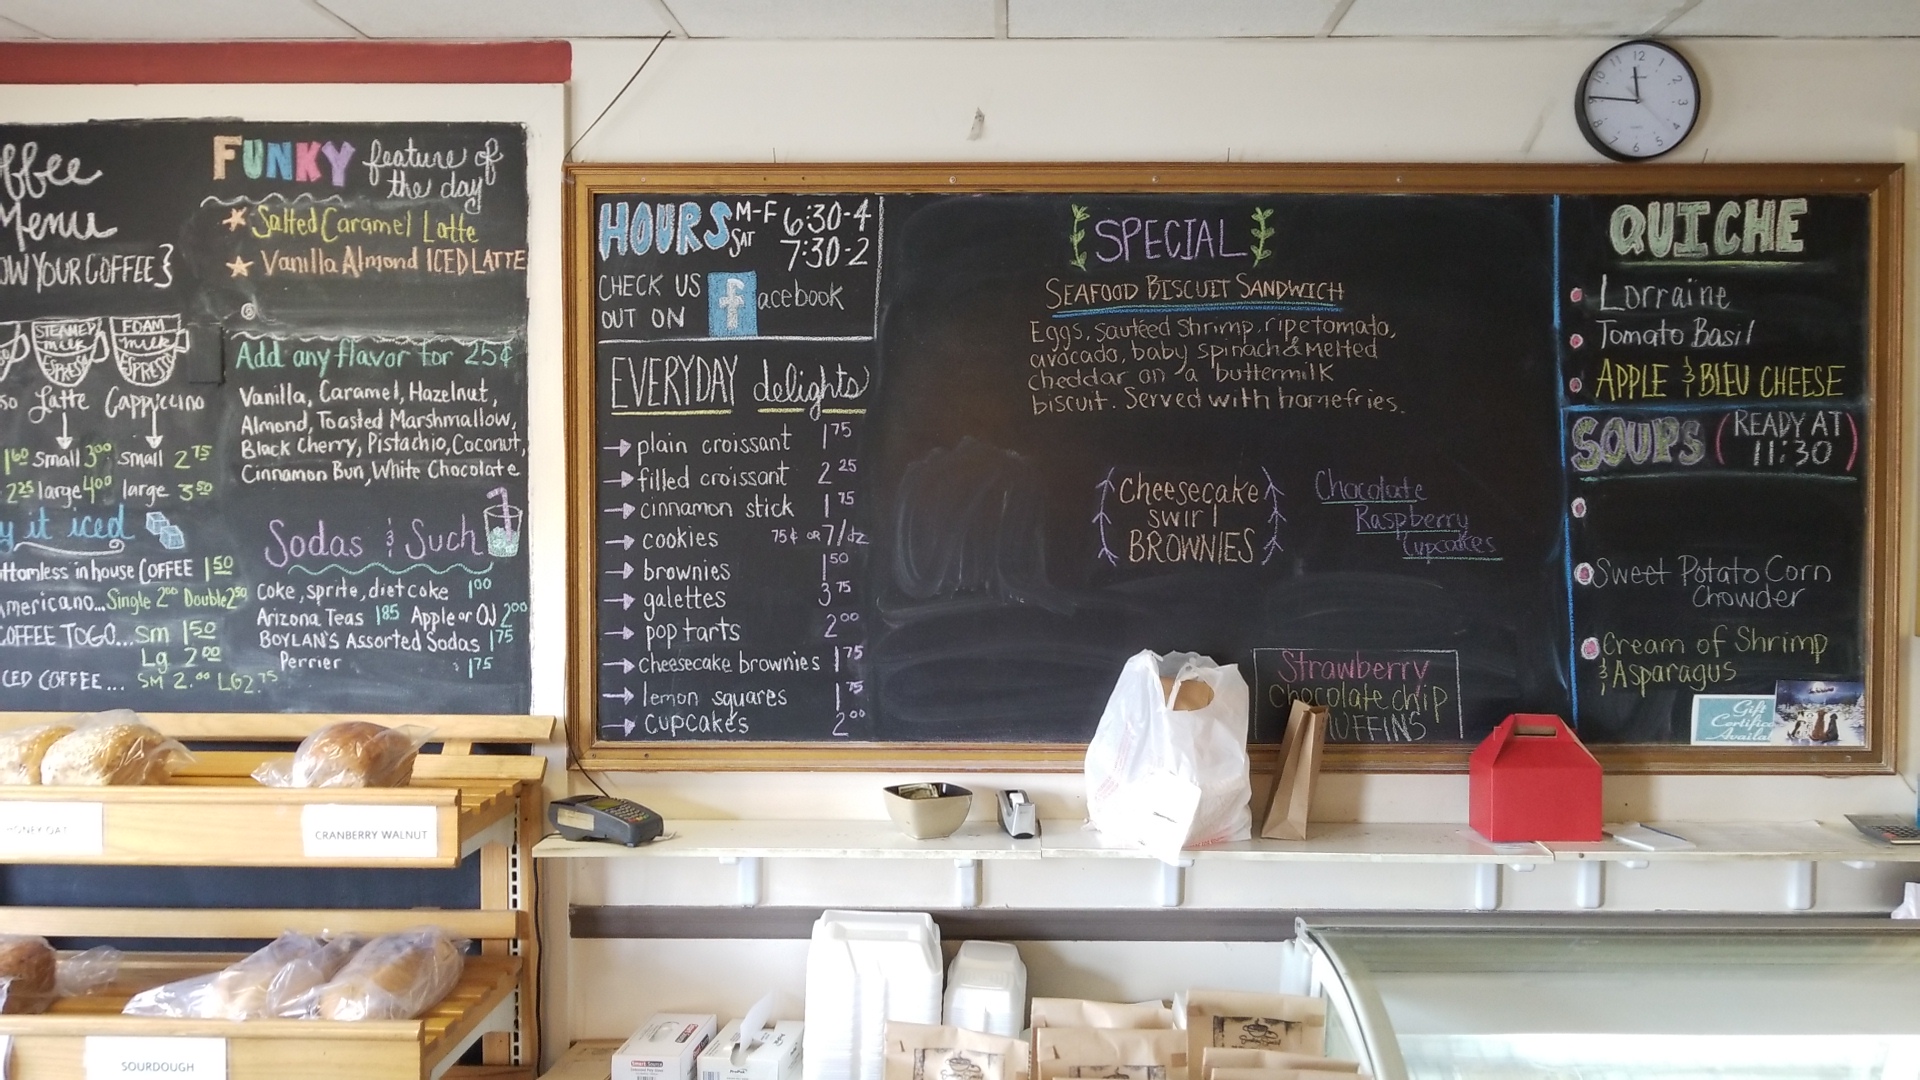 Menu
YOUR COFFEE}
STEAMED
milk
ESPRESSO
FOAM
milk
ESPRESSO
Latte
Cappiccino
1.60 small 3.00 small 2.75
2.25 large 4.00 large 3.50
it iced
in house COFFEE 1.50
Single 2.00 Double 2.50
COFFEE TO GO... Sm 1.50
Lg 2.00
COFFEE... SM 2.00 LG 2.75
FUNKY feature of
the day
Salted Caramel Latte
Vanilla Almond ICED LATTE
Add any flavor for 25¢
Vanilla, Caramel, Hazelnut,
Almond, Toasted Marshmallow,
Black Cherry, Pistachio, Coconut,
Cinnamon Bun, White Chocolate
Sodas & Such
Coke, sprite, diet coke 1.00
Arizona Teas 1.85 Apple or OJ 2.00
BOYLAN'S Assorted Sodas 1.75
Perrier 1.75
HOURS M-F 6:30-4
SAT 7:30-2
CHECK US
OUT ON facebook
EVERYDAY delights
plain croissant 1.75
filled croissant 2.25
cinnamon stick 1.75
cookies 75¢ OR 7/dz
brownies 1.50
galettes 3.75
pop tarts 2.00
cheesecake brownies 1.75
lemon squares 1.75
cupcakes 2.00
SPECIAL
SEAFOOD BISCUIT SANDWICH
Eggs, sautéed shrimp, ripe tomato,
avocado, baby spinach & melted
cheddar on a buttermilk
biscuit. Served with homefries.
Cheesecake
swirl
BROWNIES
Chocolate
Raspberry
Cupcakes
Strawberry
chocolate chip
MUFFINS
QUICHE
Lorraine
Tomato Basil
APPLE & BLEU CHEESE
SOUPS (READY AT
11:30)
Sweet Potato Corn
Chowder
Cream of Shrimp
& Asparagus
Gift
Certificates
Available
12 1 2 3 4 5 6 7 8 9 10 11
HONEY OAT
CRANBERRY WALNUT
SOURDOUGH